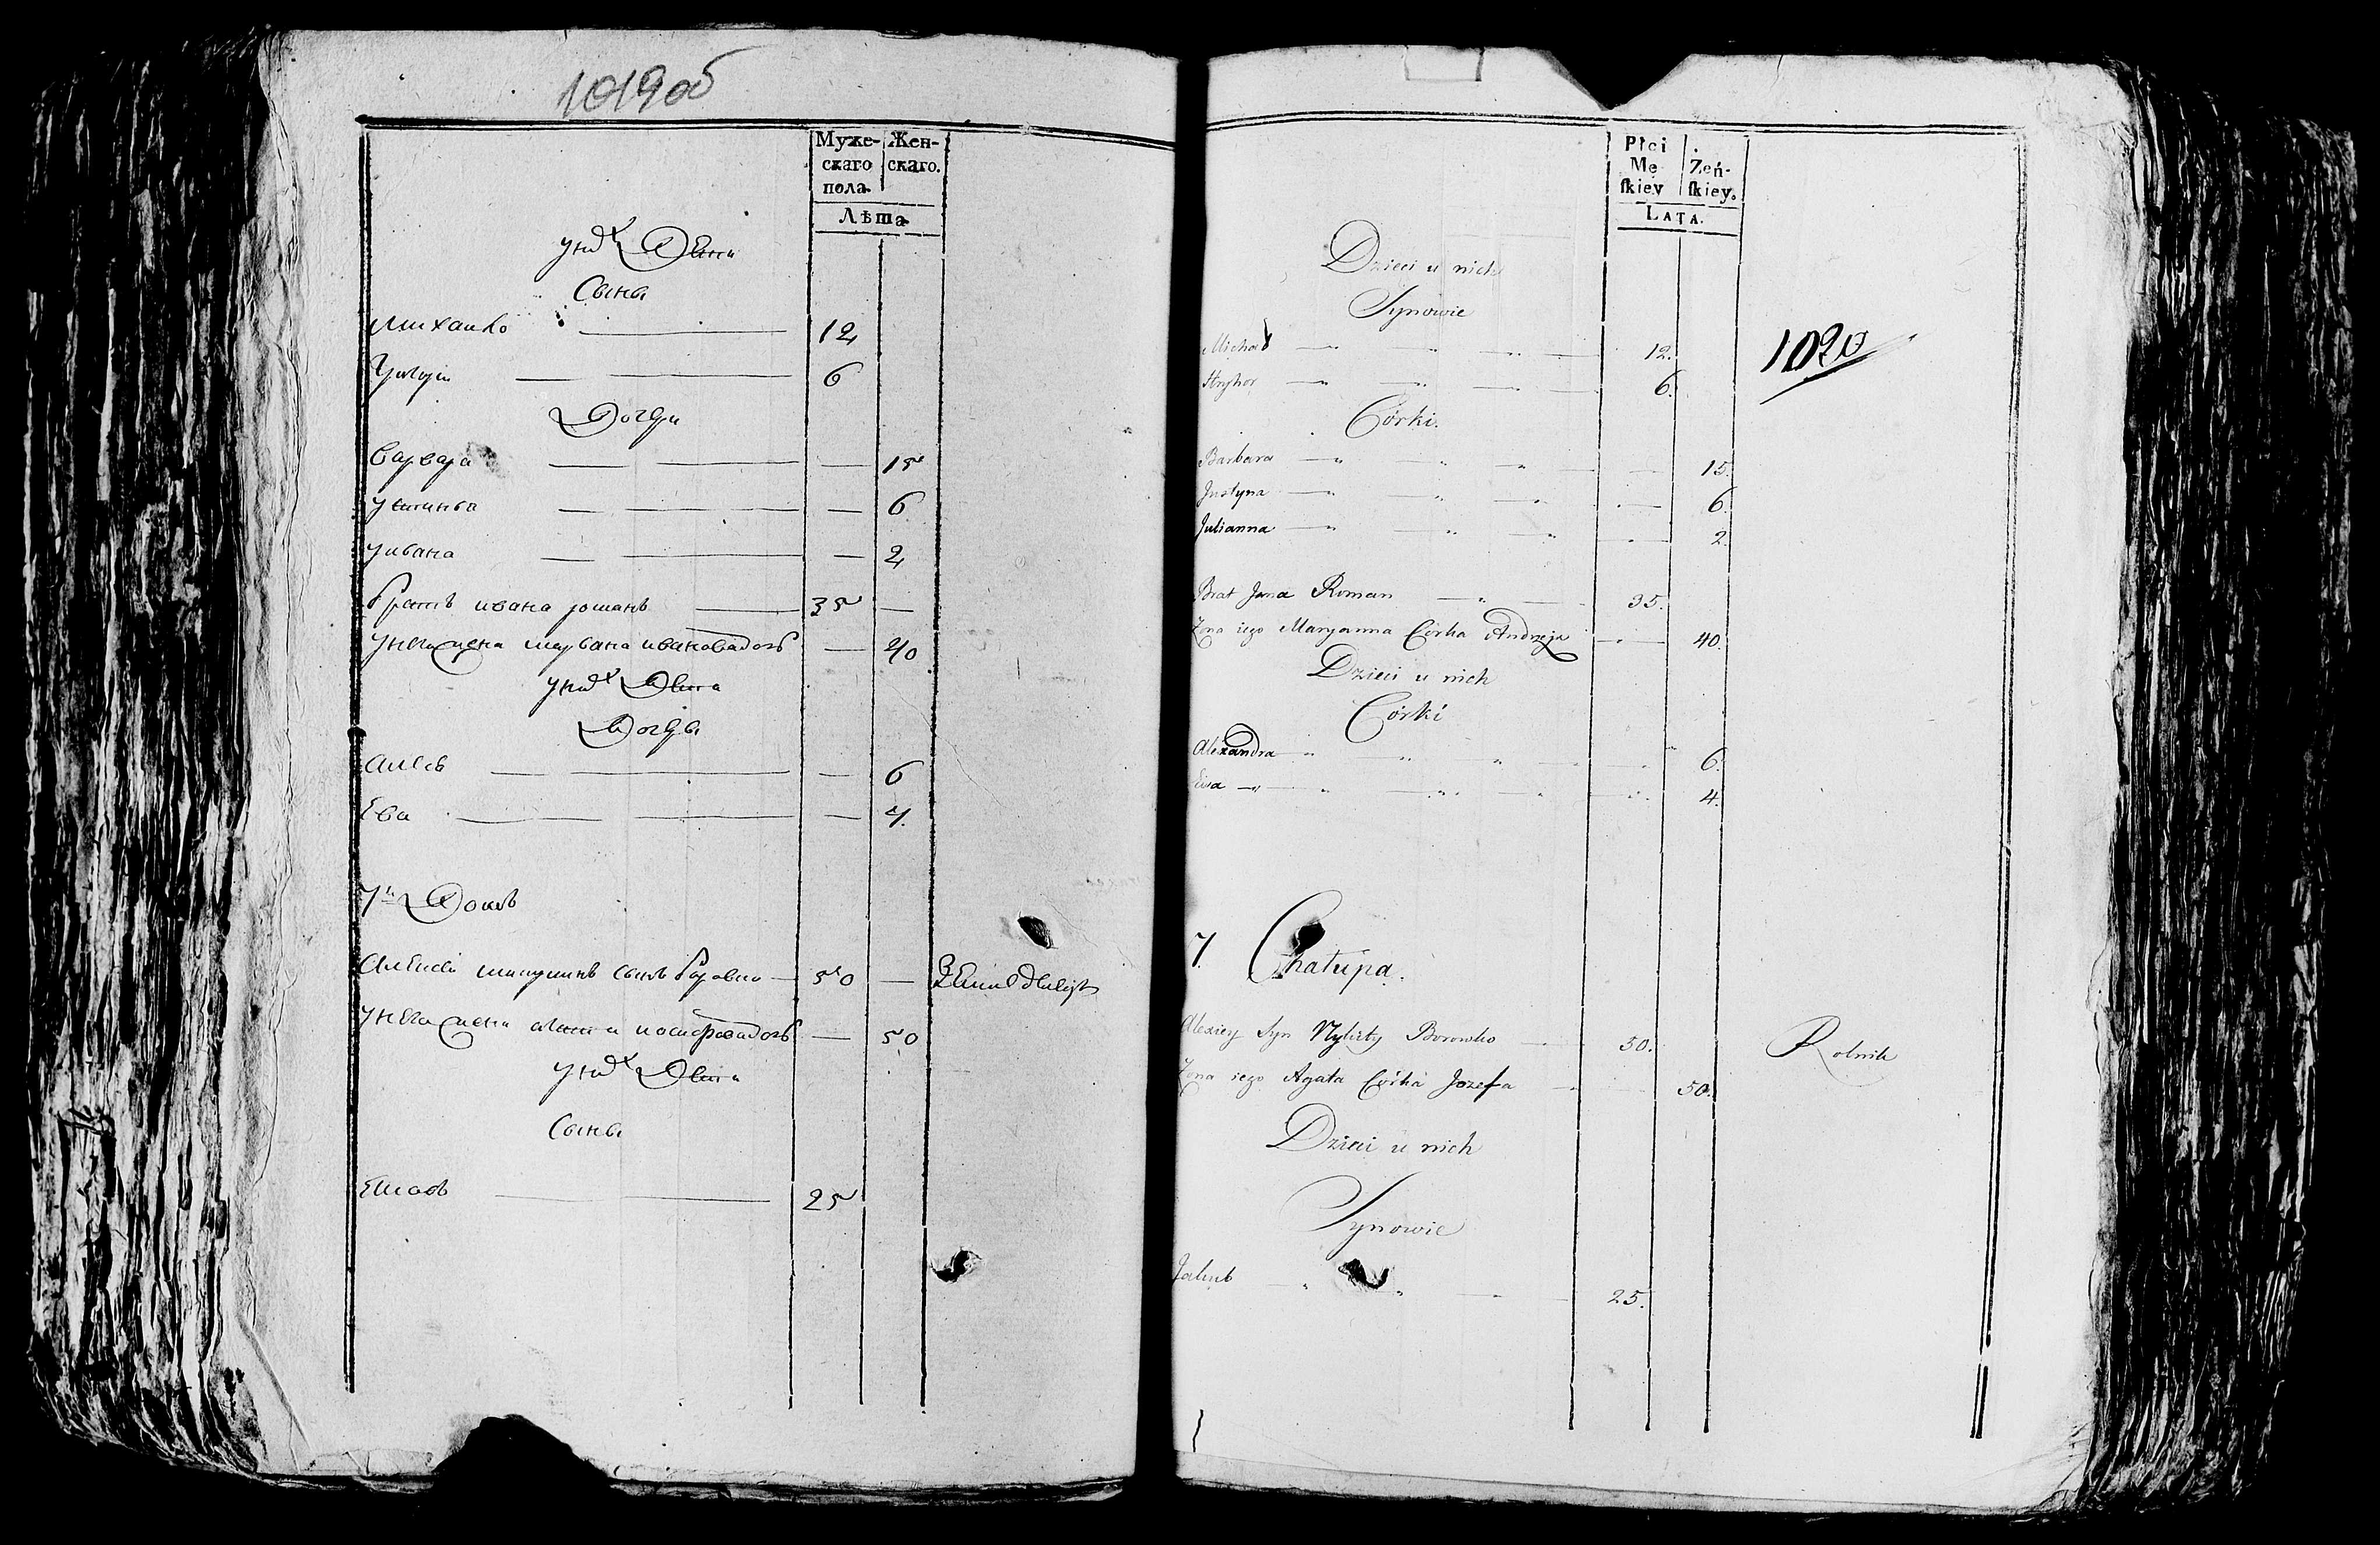 1019об
Муже-
скаго
пола
Жен-
скаго.
Лѣта
у них Дети
Сыны
Михайло 12
Григори 6
Дочери
Варвара — 15
Устинья — 6
Ульана — 2
братъ ивана романъ 35 —
у него жена марьана ивановадочь — 40
у них Дети
Дочери
Алесь — 6
Ева — 4.
7й Домъ
Алексей микитинъ сынъ боровко 50 — Земледелецъ
у него жена агата иосифовадочь — 50
у них Дети
Сыны
Яковъ 25
Płci
Mę
ſkiey
Zeń-
ſkiey.
LATA.
1020
Dzieci u nich
Synowie
Michał 12.
Hryhor 6.
Córki.
Barbara 15.
Justyna 6.
Julianna 2.
Brat Jana Roman 35.
Zona iego Maryanna Córka Andrzeja 40.
Dzieci u nich
Córki
Alexandra 6.
Ewa 4.
7. Chałupa.
Alexiey Syn Mykity Borowko 50. Rolnik
Zona iego Agata Córka Jozefa 50.
Dzieci u nich
Synowie
Jakub 25.